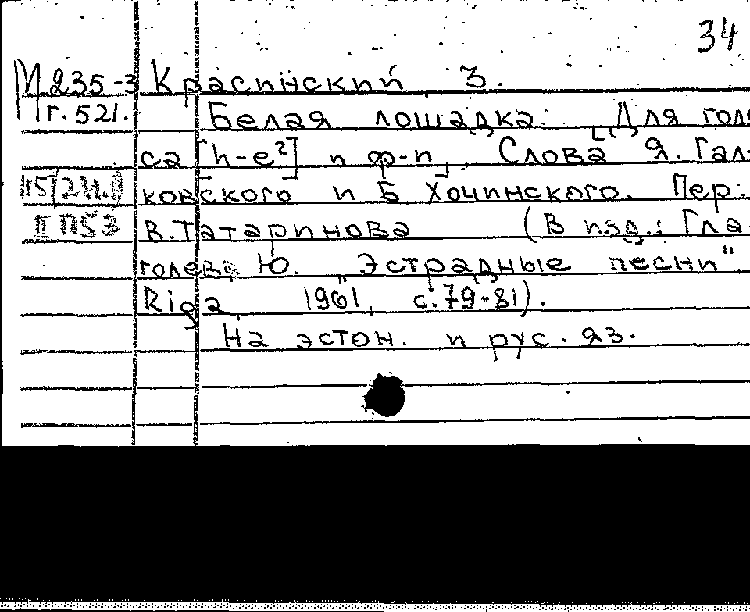 34
М 235-3 Красинский, З.
г. 521. Белая лошадка. [Для голо
са [h-e²] и ф-п]. Слова Я. Гал-
ковского и Б Хоцинского. Пер.:
В. Татаринова (В изд.: Гла
голева, Ю. "Эстрадные песни".
Riga, 1961, с. 79-81).
На эстон. и рус. яз.